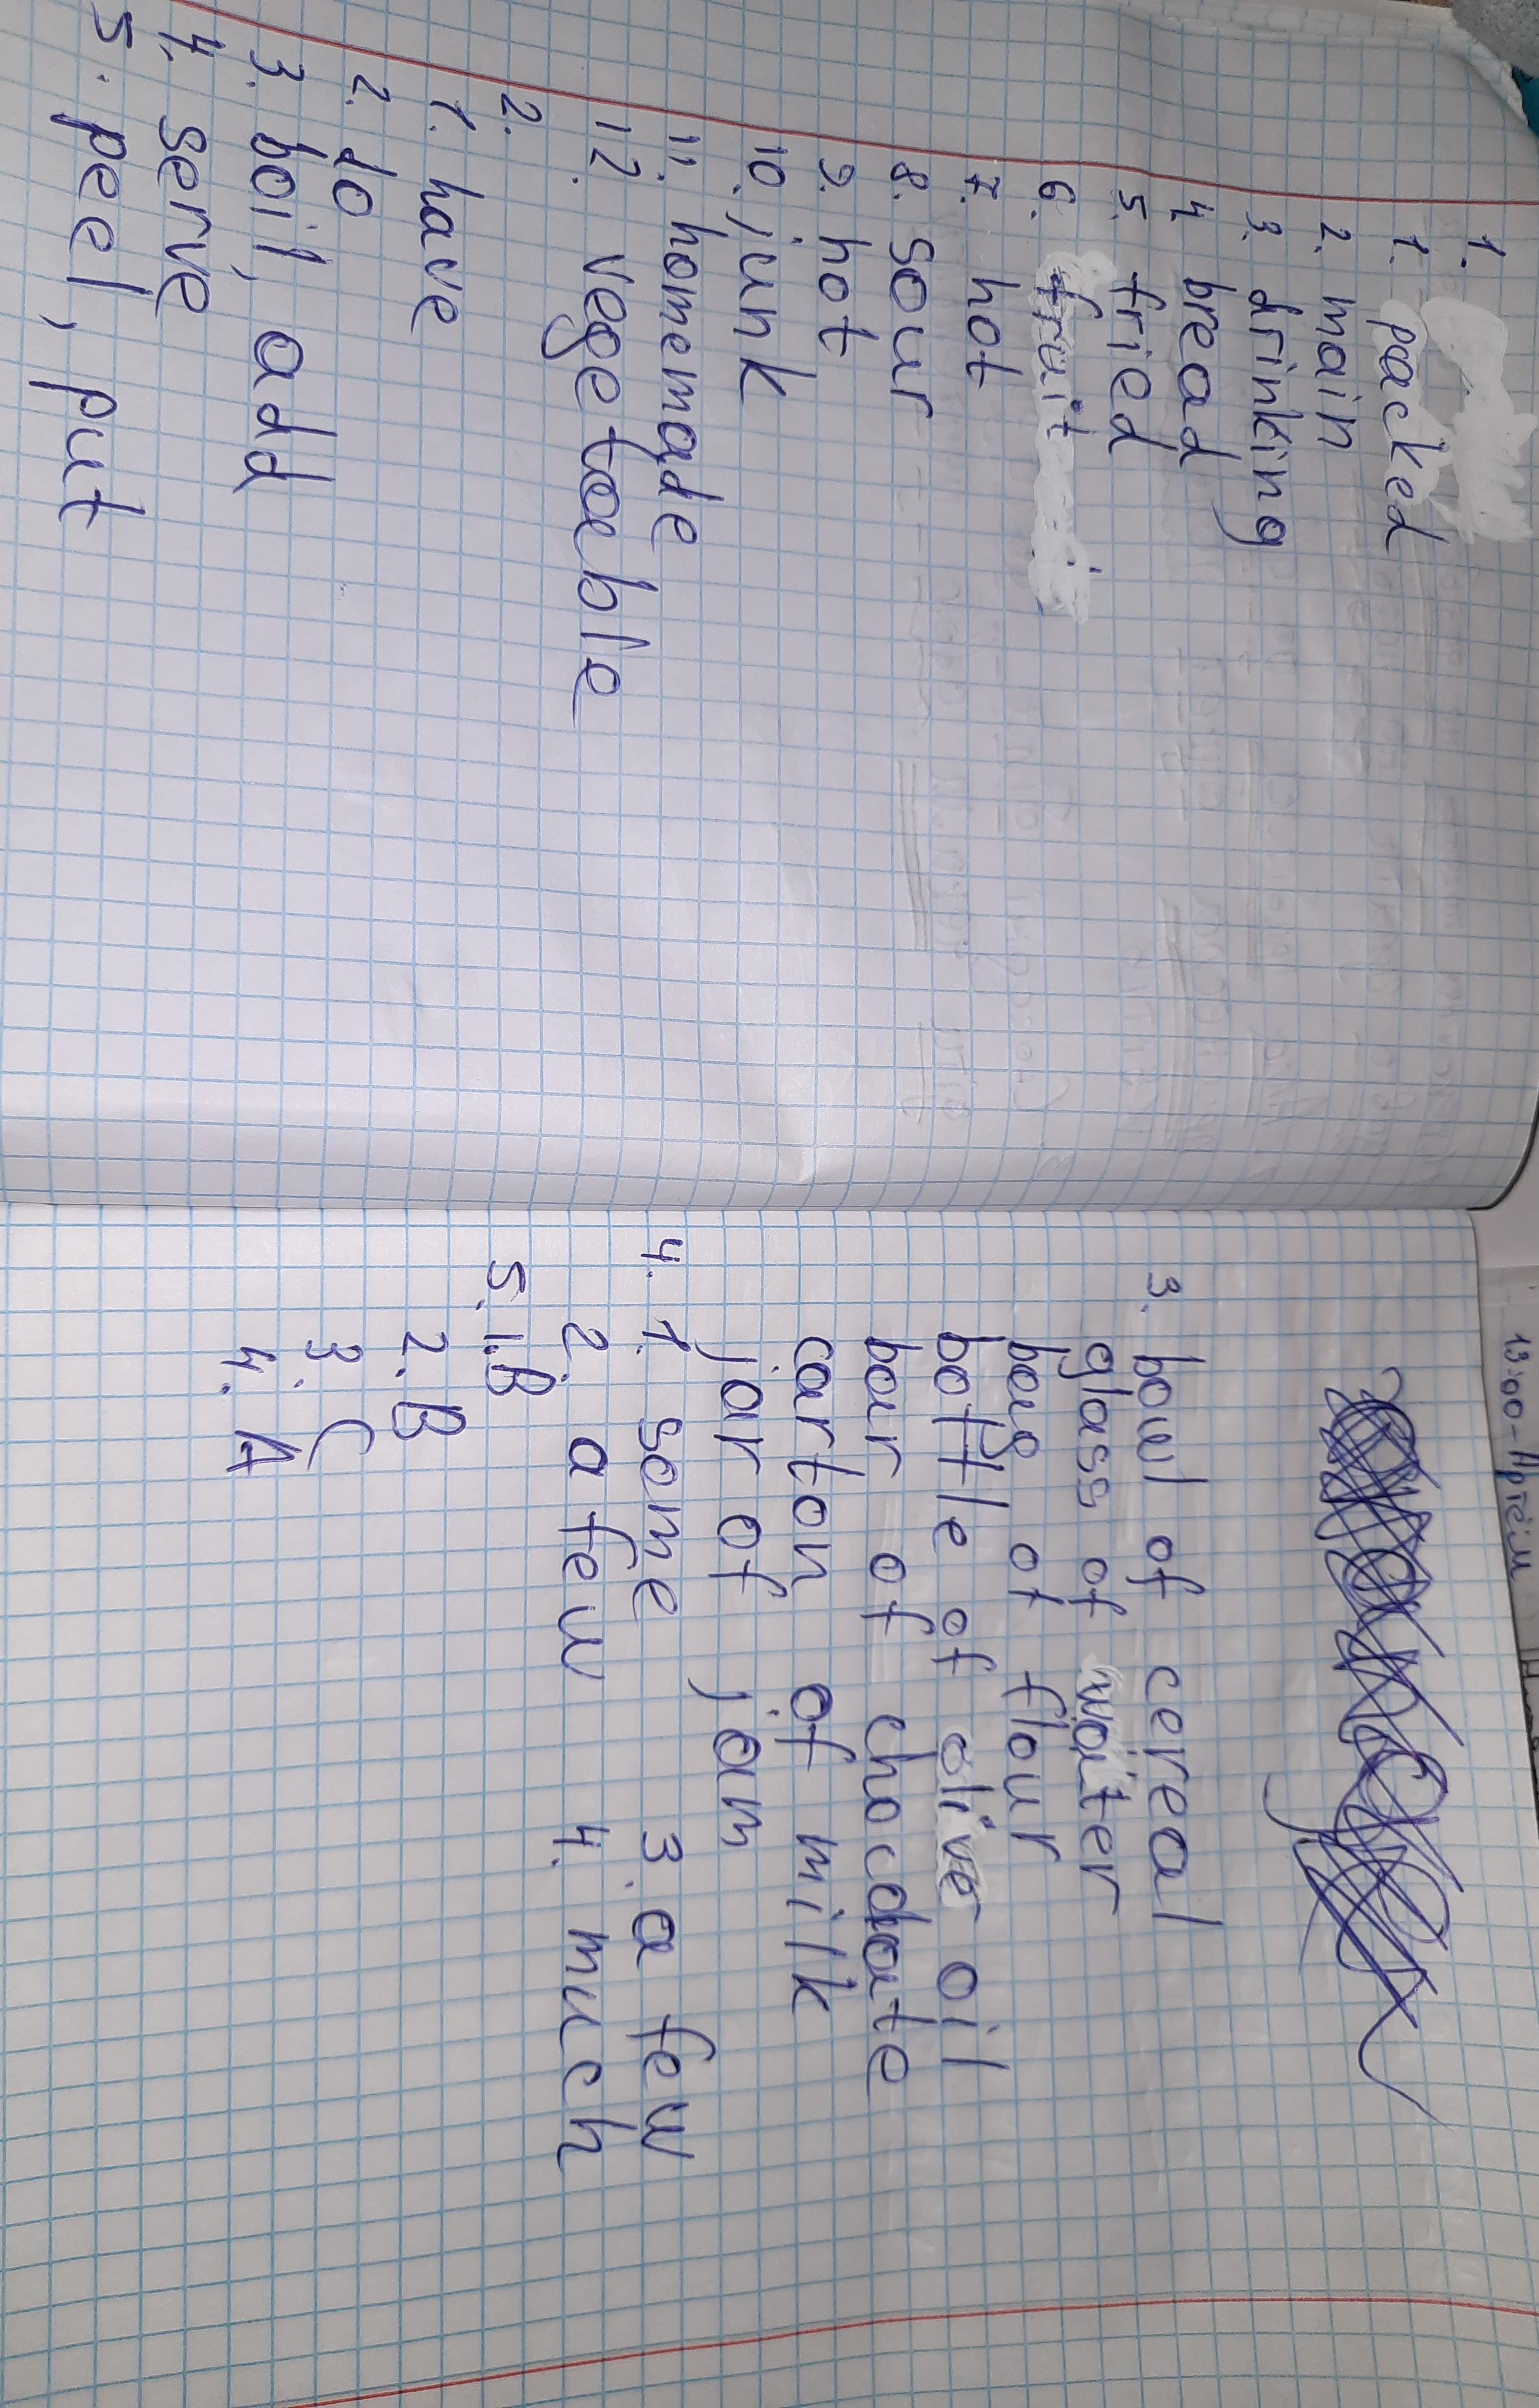 1.
1. packed
2. main
3. drinking
4 bread
5. fried
6. fruit
7. hot
8. sour
9. hot
10. junk
11. homemade
12. vegetable
2.
1. have
2. do
3. boil, add
4. serve
5. peel, put
13:00-Артём
3. bowl of cereal
glass of water
bag of flour
bottle of olive oil
bar of chocolate
carton of milk
jar of jam
4. 1. some 3. a few
2. a few 4. much
5. 1. B
2. B
3. C
4. A